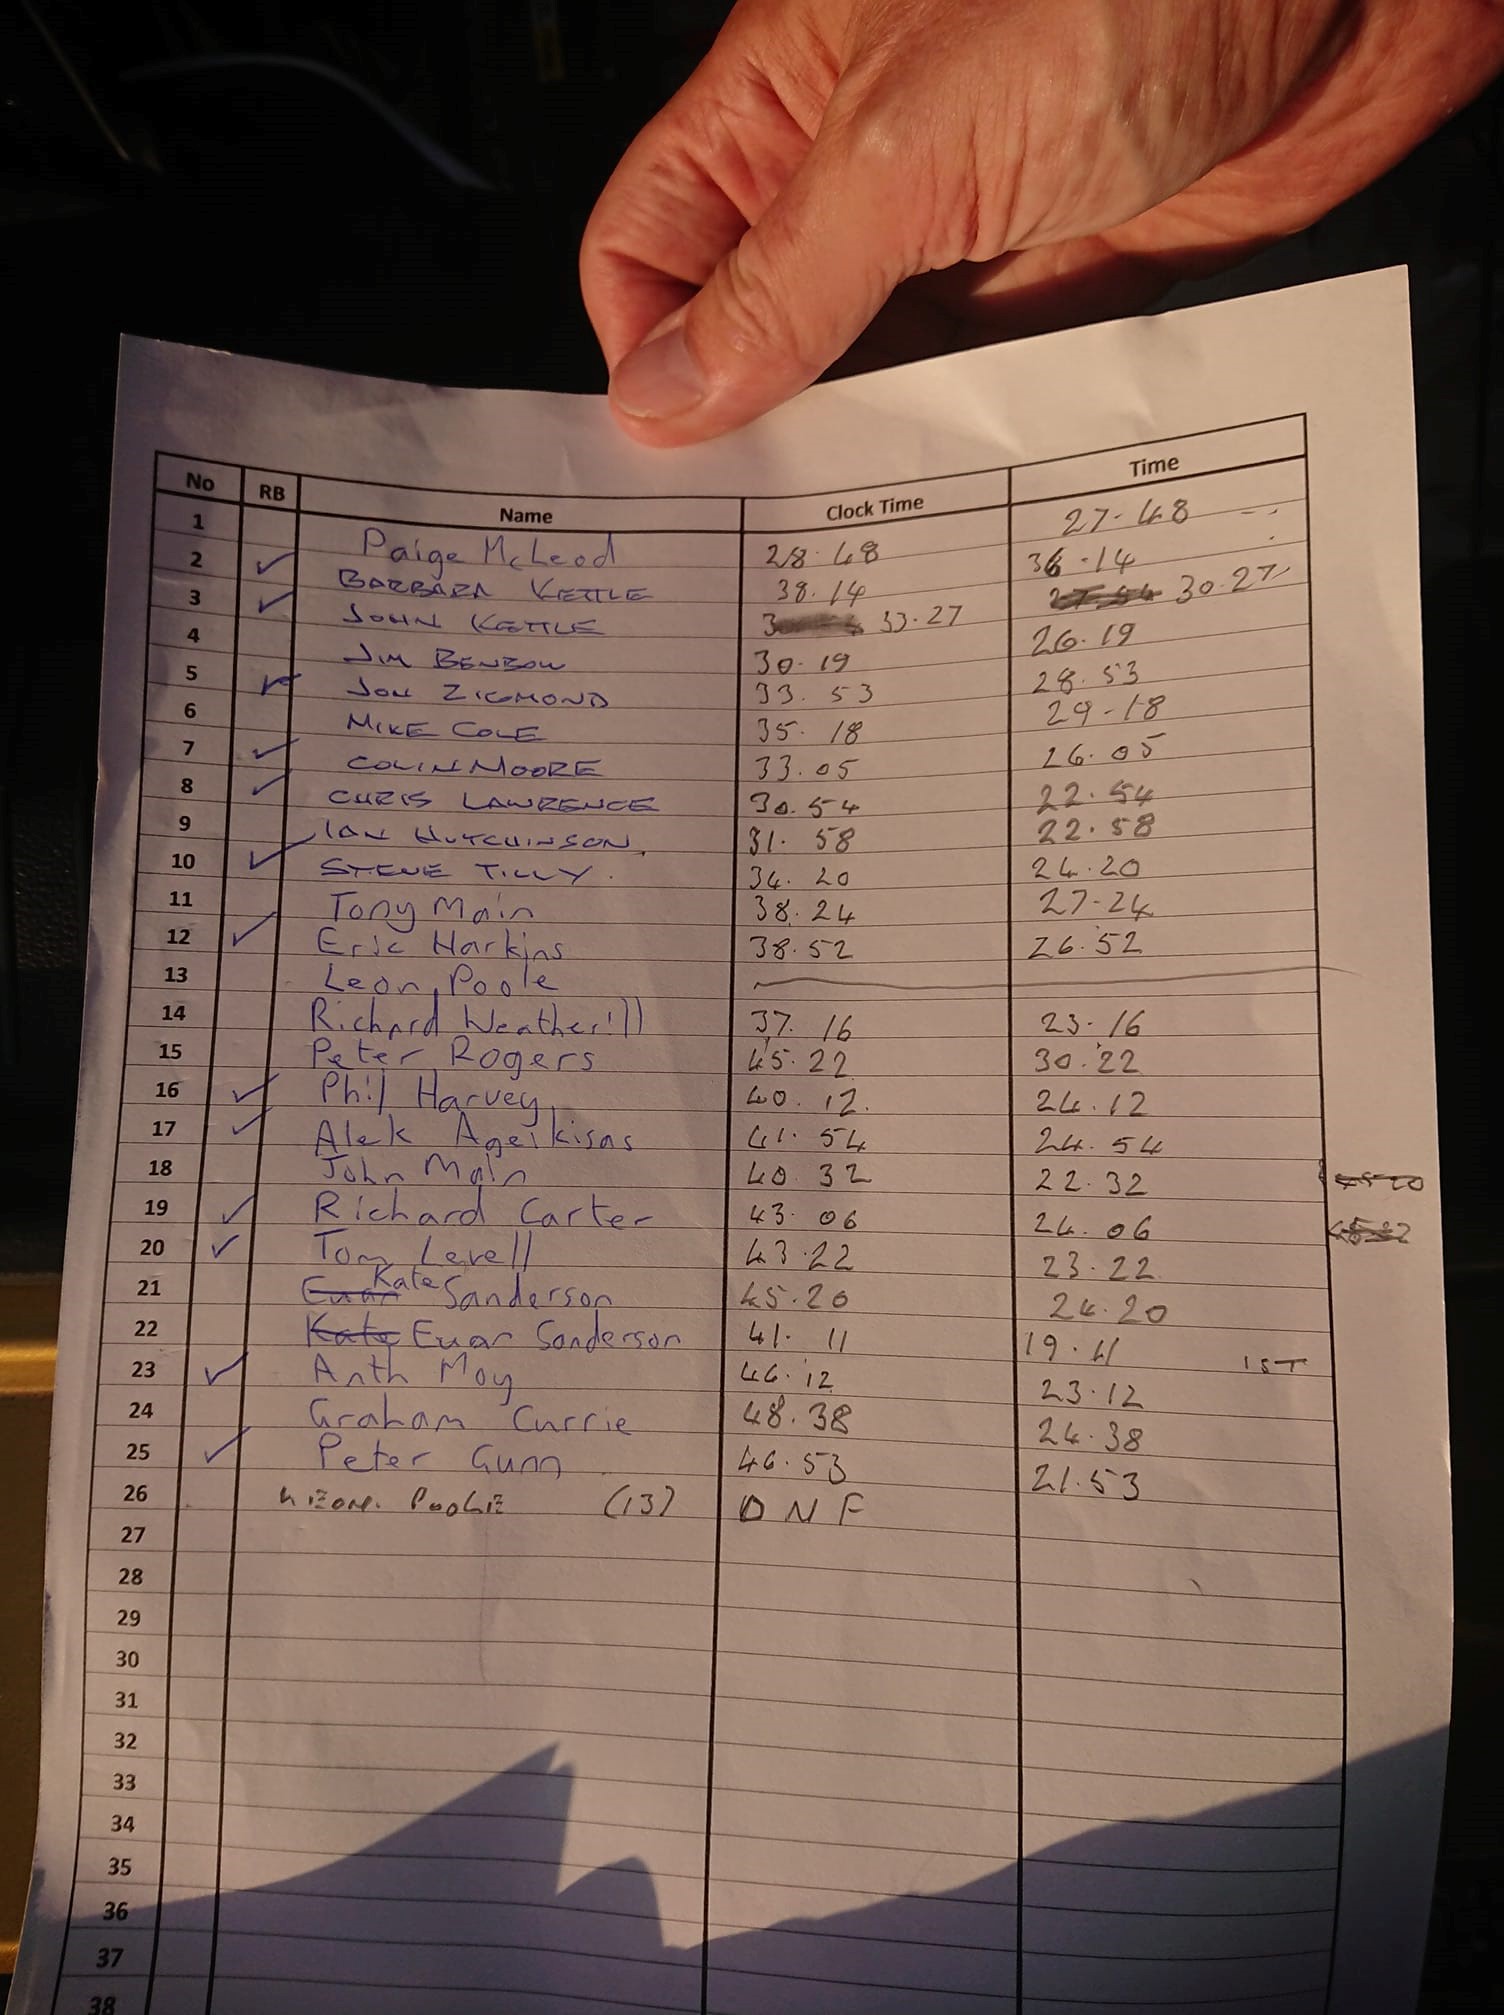 No RB Name Clock Time Time
1 Paige McLeod 28.48 27.48
2 ✓ BARBARA KETTLE 38.14 36.14
3 ✓ JOHN KETTLE 33.27 30.27
4 JIM BENBOW 30.19 26.19
5 ✓ JON ZIGMOND 33.53 28.53
6 MIKE COLE 35.18 29.18
7 ✓ COLIN MOORE 33.05 26.05
8 ✓ CHRIS LAWRENCE 30.54 22.54
9 IAN HUTCHINSON. 31.58 22.58
10 ✓ STEVE TILLY. 34.20 24.20
11 Tony Main 38.24 27.24
12 ✓ Eric Harkins 38.52 26.52
13 Leon Poole
14 Richard Weatherill 37.16 23.16
15 Peter Rogers 45.22 30.22
16 ✓ Phil Harvey 40.12. 24.12
17 ✓ Alek Ageikisas 41.54 24.54
18 John Main 40.32 22.32
19 ✓ Richard Carter 43.06 24.06
20 ✓ Tom Levell 43.22 23.22
21 Euan Kate Sanderson 45.20 24.20
22 Kate Euan Sanderson 41.11 19.11 1ST
23 ✓ Anth Moy 46.12 23.12
24 Graham Currie 48.38 24.38
25 ✓ Peter Gunn 46.53 21.53
26 (13) DNF
27
28
29
30
31
32
33
34
35
36
37
38